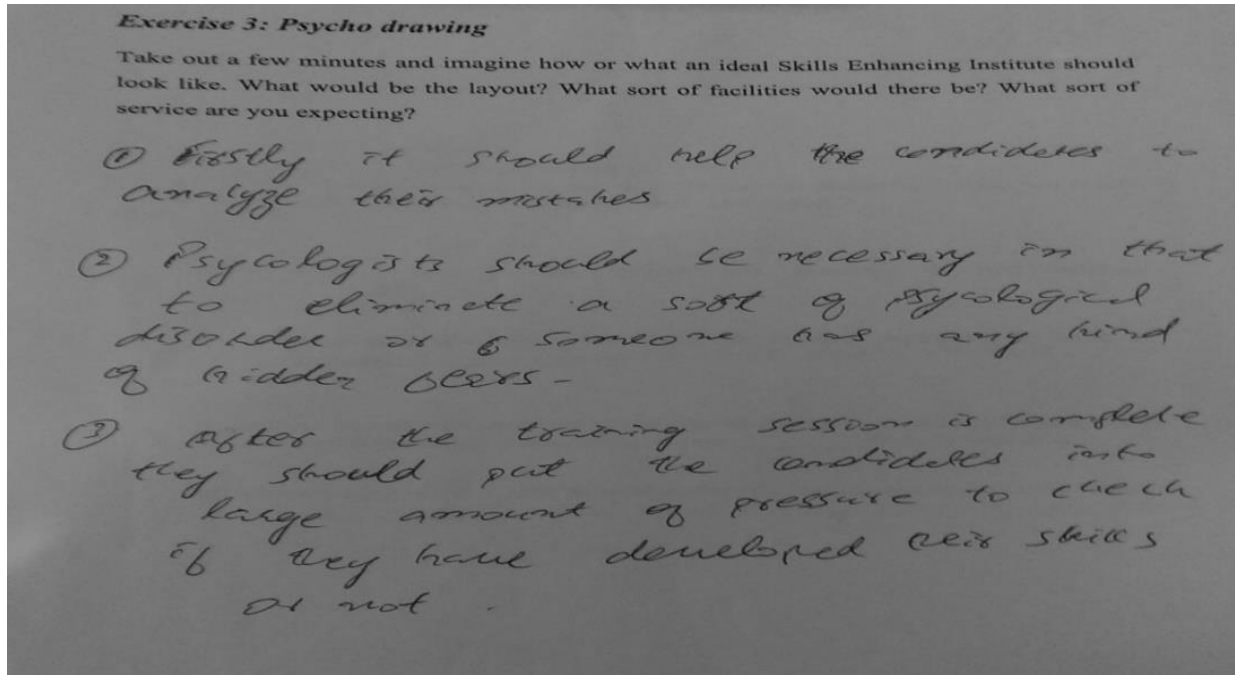 Exercise 3: Psycho drawing
Take out a few minutes and imagine how or what an ideal Skills Enhancing Institute should
look like. What would be the layout? What sort of facilities would there be? What sort of
service are you expecting?
① Firstly it should help the candidates to
analyze their mistakes
② Psycologists should be necessary in that
to eliminate a sort of psycological
disorder or someone has any kind
of hidden fears -
③ after the training session is complete
they should put the candidates into
large amount of pressure to check
if they have developed their skills
or not .